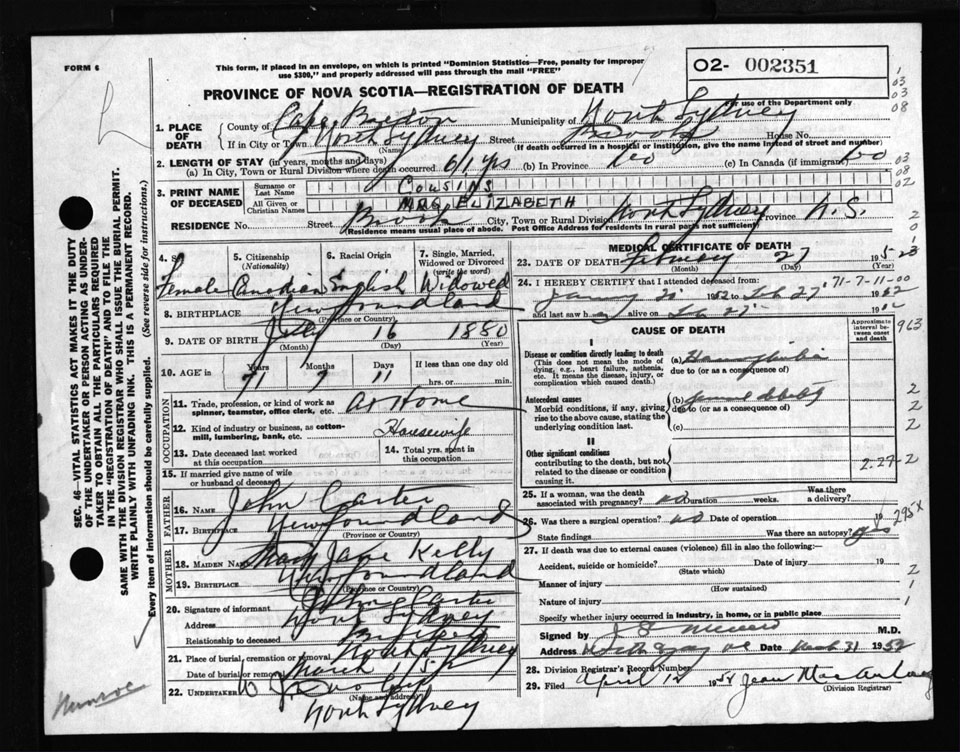 FORM 6
This form, if placed in an envelope, on which is printed "Dominion Statistics—Free, penalty for improper
use $300," and properly addressed will pass through the mail "FREE"
02- 002351
For use of the Department only
PROVINCE OF NOVA SCOTIA—REGISTRATION OF DEATH
1. PLACE OF DEATH
County of Cape Breton Municipality of North Sydney
If in City or Town North Sydney Street Brook House No.
(Name) (If death occurred in a hospital or institution, give the name instead of street and number)
2. LENGTH OF STAY (in years, months and days)
(a) In City, Town or Rural Division where death occurred 61 yrs (b) In Province (c) In Canada (if immigrant)
3. PRINT NAME OF DECEASED
Surname or Last Name COUSINS
All Given or Christian Names MRS. ELIZABETH
RESIDENCE No. Street Brook City, Town or Rural Division North Sydney Province N.S.
(Residence means usual place of abode. Post Office Address for residents in rural parts not sufficient)
4. Sex 5. Citizenship (Nationality) 6. Racial Origin 7. Single, Married, Widowed or Divorced (write the word)
Female Canadian English Widowed
8. BIRTHPLACE Newfoundland
(Province or Country)
9. DATE OF BIRTH July 16 1880
(Month) (Day) (Year)
10. AGE in Years Months Days If less than one day old
71 7 11 hrs. or min.
OCCUPATION
11. Trade, profession, or kind of work as spinner, teamster, office clerk, etc. At Home
12. Kind of industry or business, as cotton-mill, lumbering, bank, etc. Housewife
13. Date deceased last worked at this occupation
14. Total yrs. spent in this occupation
15. If married give name of wife or husband of deceased
FATHER
16. Name John Carter
17. Birthplace Newfoundland
(Province or Country)
MOTHER
18. MAIDEN NAME Mary Jane Kelly
19. Birthplace Newfoundland
20. Signature of informant Carter
Address North Sydney
Relationship to deceased
21. Place of burial, cremation or removal North Sydney
Date of burial or removal March
22. UNDERTAKER
(Name and address)
North Sydney
MEDICAL CERTIFICATE OF DEATH
23. DATE OF DEATH February 27 195
(Month) (Day)
24. I HEREBY CERTIFY that I attended deceased from: 71-7-11-00
and last saw h alive on Feb 27
CAUSE OF DEATH
Approximate interval between onset and death
I
Disease or condition directly leading to death
(This does not mean the mode of dying, e.g., heart failure, asthenia, etc. It means the disease, injury, or complication which caused death.)
(a)
due to (or as a consequence of)
Antecedent causes
Morbid conditions, if any, giving rise to the above cause, stating the underlying condition last.
(b) general debility
due to (or as a consequence of)
(c)
II
Other significant conditions
contributing to the death, but not related to the disease or condition causing it.
2-27-2
25. If a woman, was the death associated with pregnancy? no Duration weeks. Was there a delivery?
26. Was there a surgical operation? no Date of operation 19
State findings Was there an autopsy?
295X
27. If death was due to external causes (violence) fill in also the following:-
Accident, suicide or homicide? Date of injury 19
(State which)
Manner of injury
(How sustained)
Nature of injury
Specify whether injury occurred in industry, in home, or in public place
Signed by M.D.
Address Date March 31 1952
28. Division Registrar's Record Number
29. Filed April 12 195
(Division Registrar)
SEC. 46—VITAL STATISTICS ACT MAKES IT THE DUTY
OF THE UNDERTAKER OR PERSON ACTING AS UNDER-
TAKER TO OBTAIN ALL THE PARTICULARS REQUIRED
IN THE "REGISTRATION OF DEATH" AND TO FILE THE
SAME WITH THE DIVISION REGISTRAR WHO SHALL ISSUE THE BURIAL PERMIT.
WRITE PLAINLY WITH UNFADING INK. THIS IS A PERMANENT RECORD.
Every item of information should be carefully supplied. (See reverse side for instructions.)
Munroe